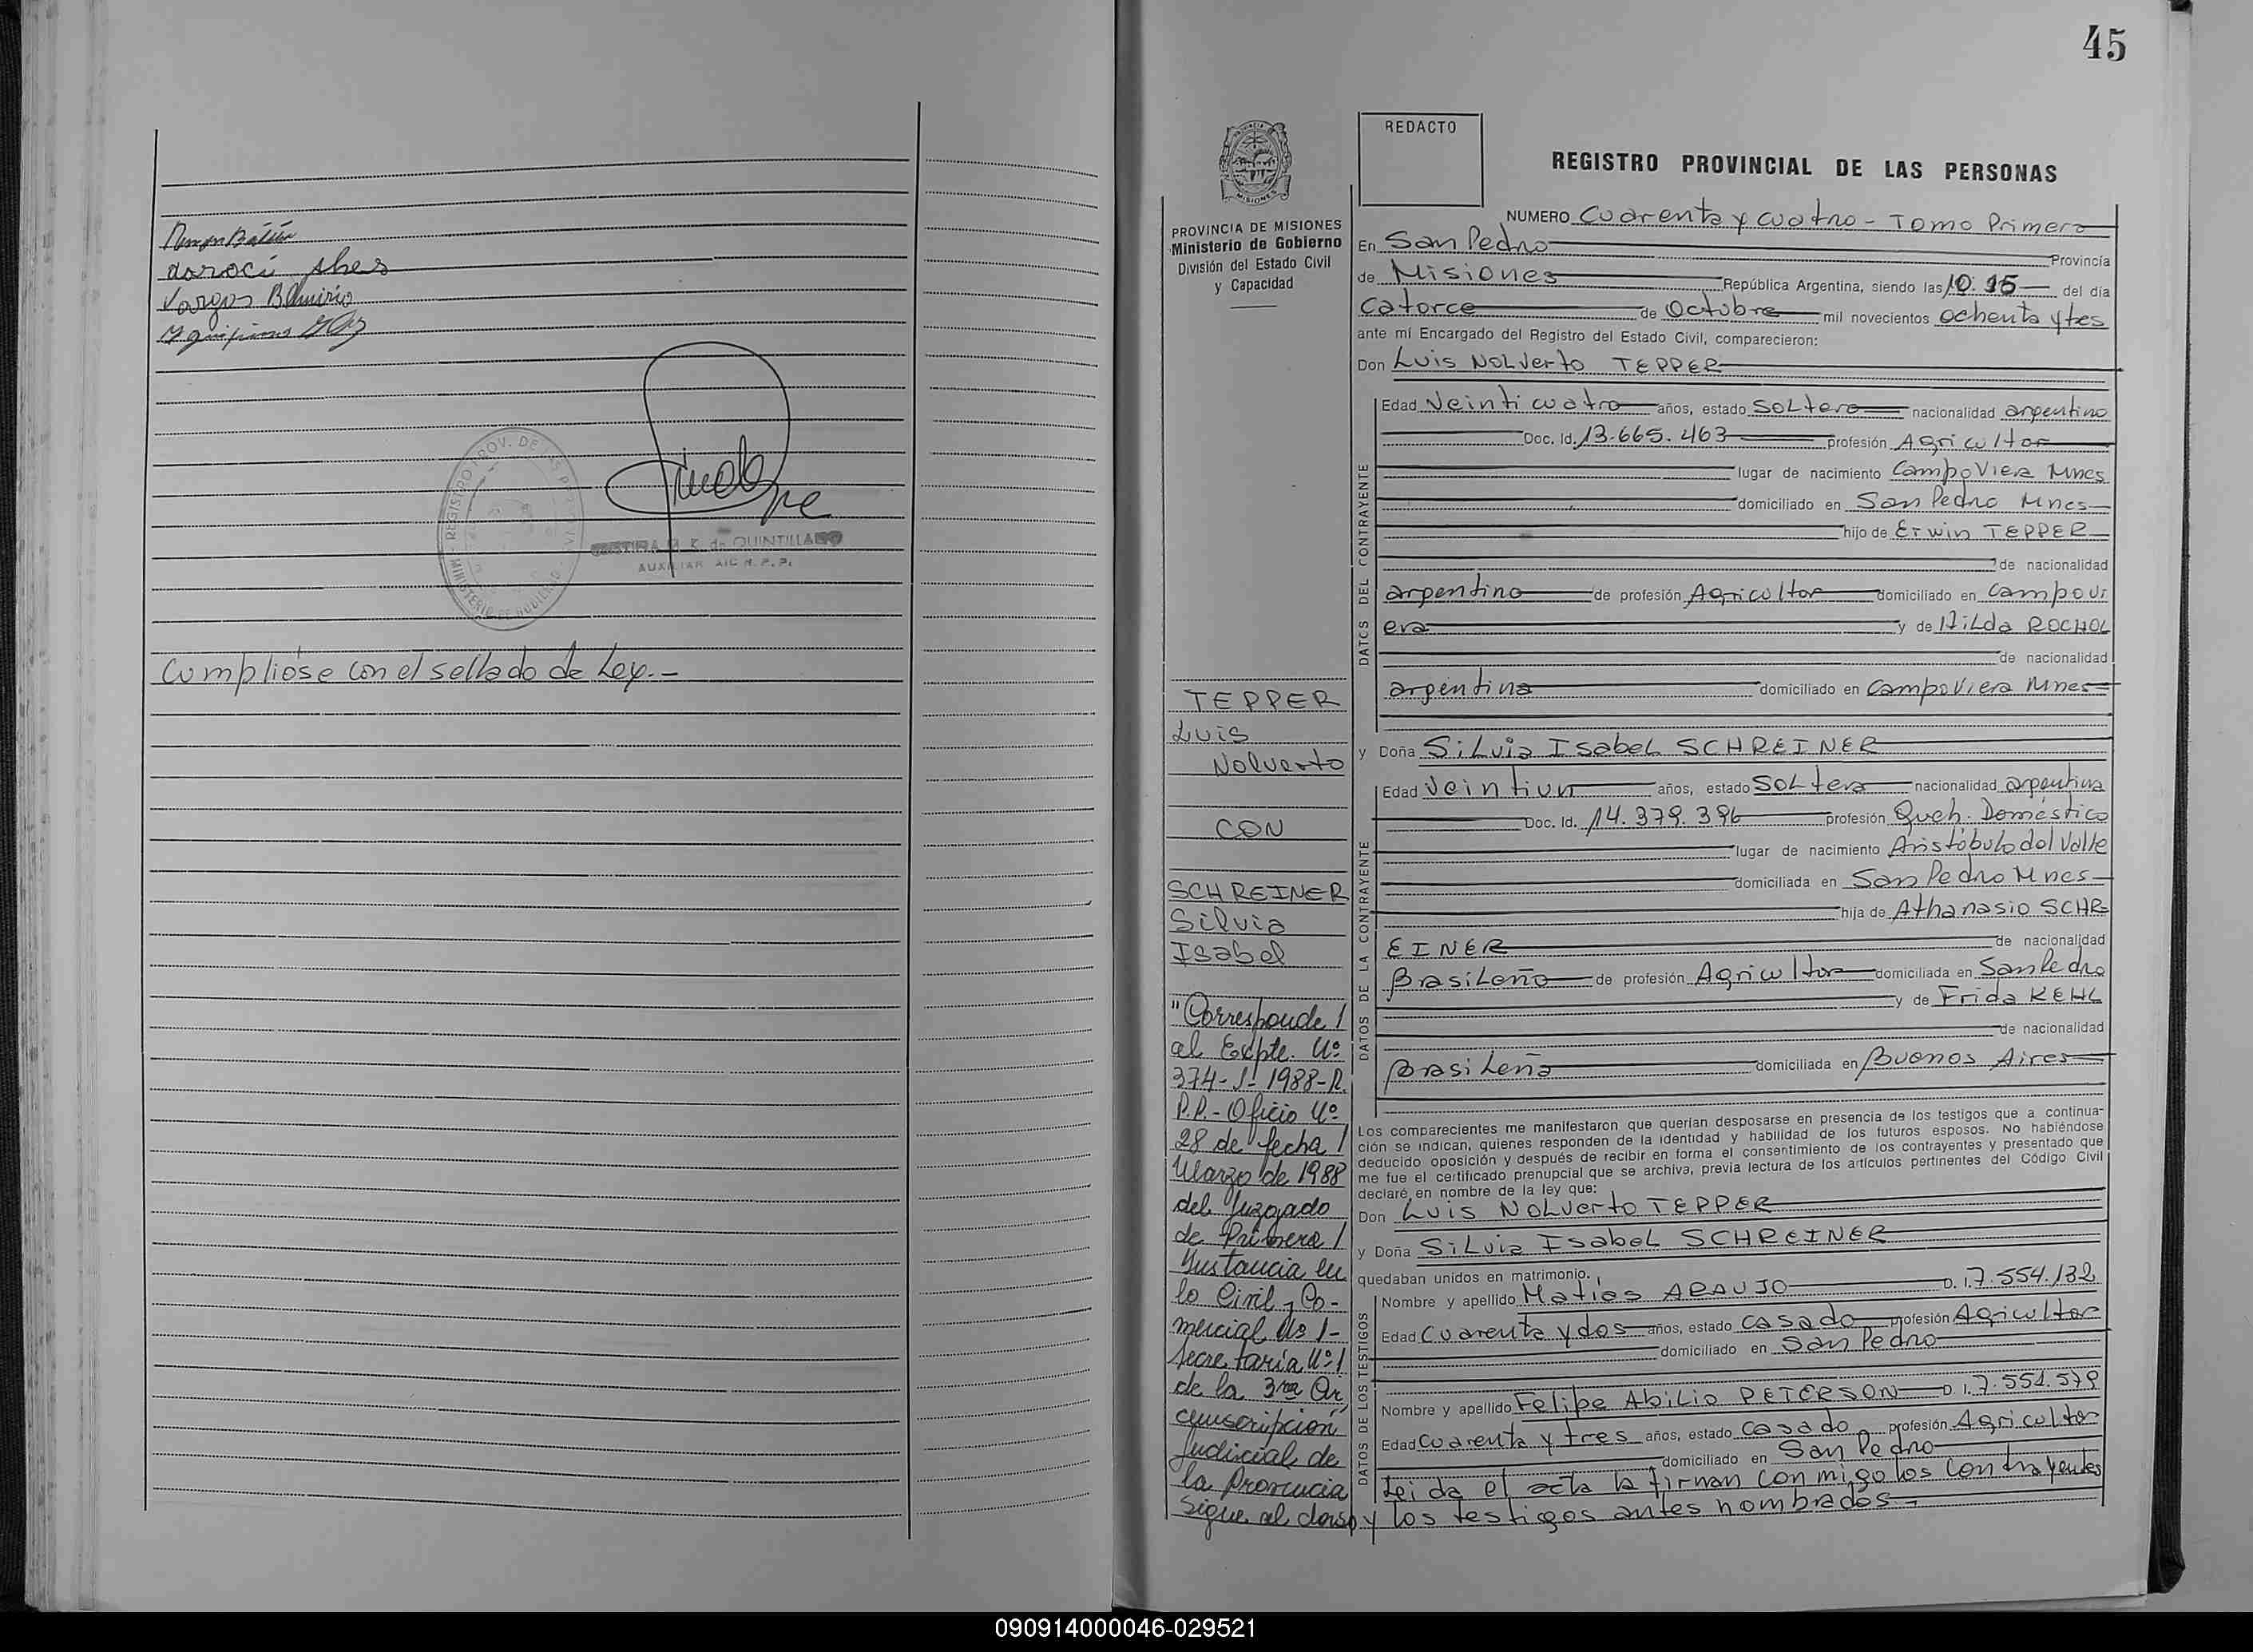 Ramon
Vargas
CRISTINA M. K. de QUINTILLANO
AUXILIAR
REGISTRO PROV. DE
MINISTERIO DE GOBIERNO
Cumplióse con el sellado de Ley.-
45
PROVINCIA DE MISIONES
Ministerio de Gobierno
División del Estado Civil
y Capacidad
TEPPER
Luis
Nolverto
CON
SCHREINER
Silvia
Isabel
"Corresponde /
al Expte. Nº
374-J-1988-R.
P.P.- Oficio Nº
28 de fecha /
Marzo de 1988
del Juzgado
de Primera /
Instancia en
lo Civil y Co-
mercial Nº 1-
Secretaría Nº 1
de la 3ra Cir
cunscripción
Judicial de
la Provincia
sigue al dorso
REDACTO
REGISTRO PROVINCIAL DE LAS PERSONAS
NUMERO Cuarenta y cuatro - Tomo Primero
En San Pedro Provincia
de Misiones República Argentina, siendo las 10. del día
catorce de Octubre mil novecientos ochenta y tes
ante mí Encargado del Registro del Estado Civil, comparecieron:
Don Luis Nolverto TEPPER
DATOS DEL CONTRAYENTE
Edad Veinticuatro años, estado Soltero nacionalidad argentino
Doc. Id. 13.665.463 profesión Agricultor
lugar de nacimiento Campo Viera Mnes
domiciliado en San Pedro Mnes
hijo de Erwin TEPPER
de nacionalidad
argentino de profesión Agricultor domiciliado en Campo Vi
era y de Hilda ROCHOL
de nacionalidad
argentina domiciliado en Campo Viera Mnes
y Doña Silvia Isabel SCHREINER
DATOS DE LA CONTRAYENTE
Edad Veintiun años, estado Soltera nacionalidad argentina
Doc. Id. 14.379.396 profesión Queh. Doméstico
lugar de nacimiento Aristóbulo del Valle
domiciliada en San Pedro Mnes
hija de Athanasio SCHR-
EINER de nacionalidad
Brasileño de profesión Agricultor domiciliada en San Pedro
y de Frida KEHL
de nacionalidad
Brasileña domiciliada en Buenos Aires
Los comparecientes me manifestaron que querían desposarse en presencia de los testigos que a continua-
ción se indican, quienes responden de la identidad y habilidad de los futuros esposos. No habiéndose
deducido oposición y después de recibir en forma el consentimiento de los contrayentes y presentado que
me fue el certificado prenupcial que se archiva, previa lectura de los artículos pertinentes del Código Civil
declaré en nombre de la ley que:
Don Luis Nolverto TEPPER
y Doña Silvia Isabel SCHREINER
quedaban unidos en matrimonio.
DATOS DE LOS TESTIGOS
Nombre y apellido Matias ARAUJO D. I. 7.554.132
Edad Cuarenta y dos años, estado casado profesión Agricultor
domiciliado en San Pedro
Nombre y apellido Felipe Abilio PETERSON D. I. 7.551.579
Edad Cuarenta y tres años, estado casado profesión Agricultor
domiciliado en San Pedro
Leida el acta la firman conmigo los contrayentes
y los testigos antes nombrados.-
090914000046-029521